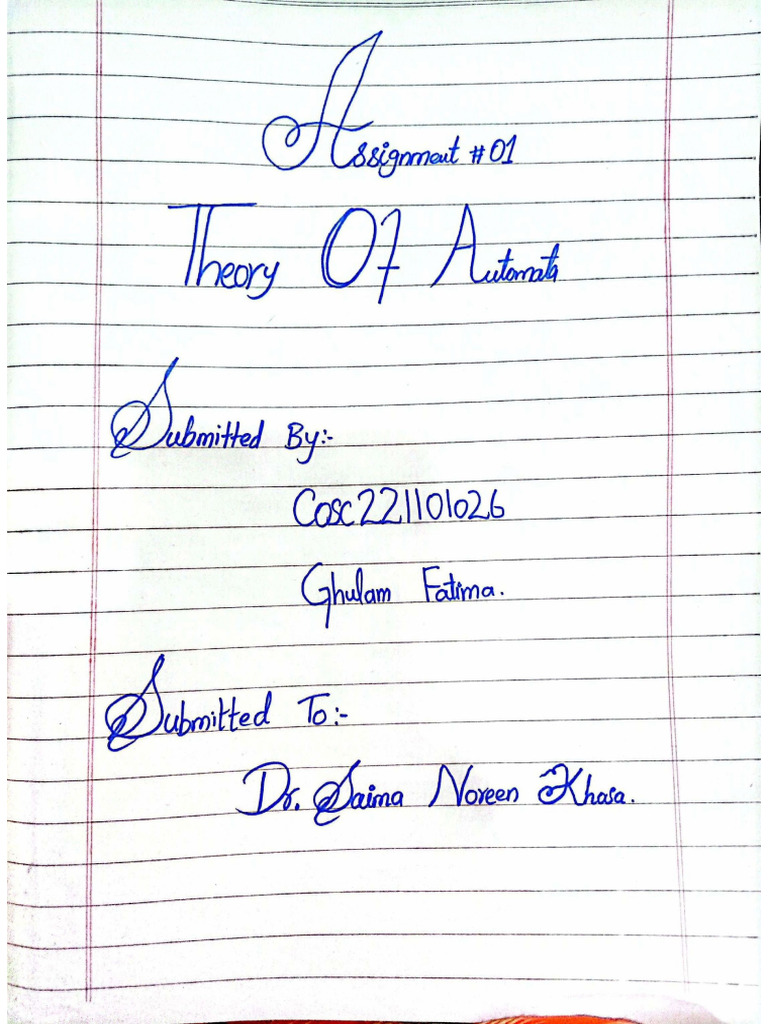 Assignment #01
Theory Of Automata
Submitted By:-
Cosc221101026
Ghulam Fatima.
Submitted To:-
Dr. Saima Noreen Khosa.